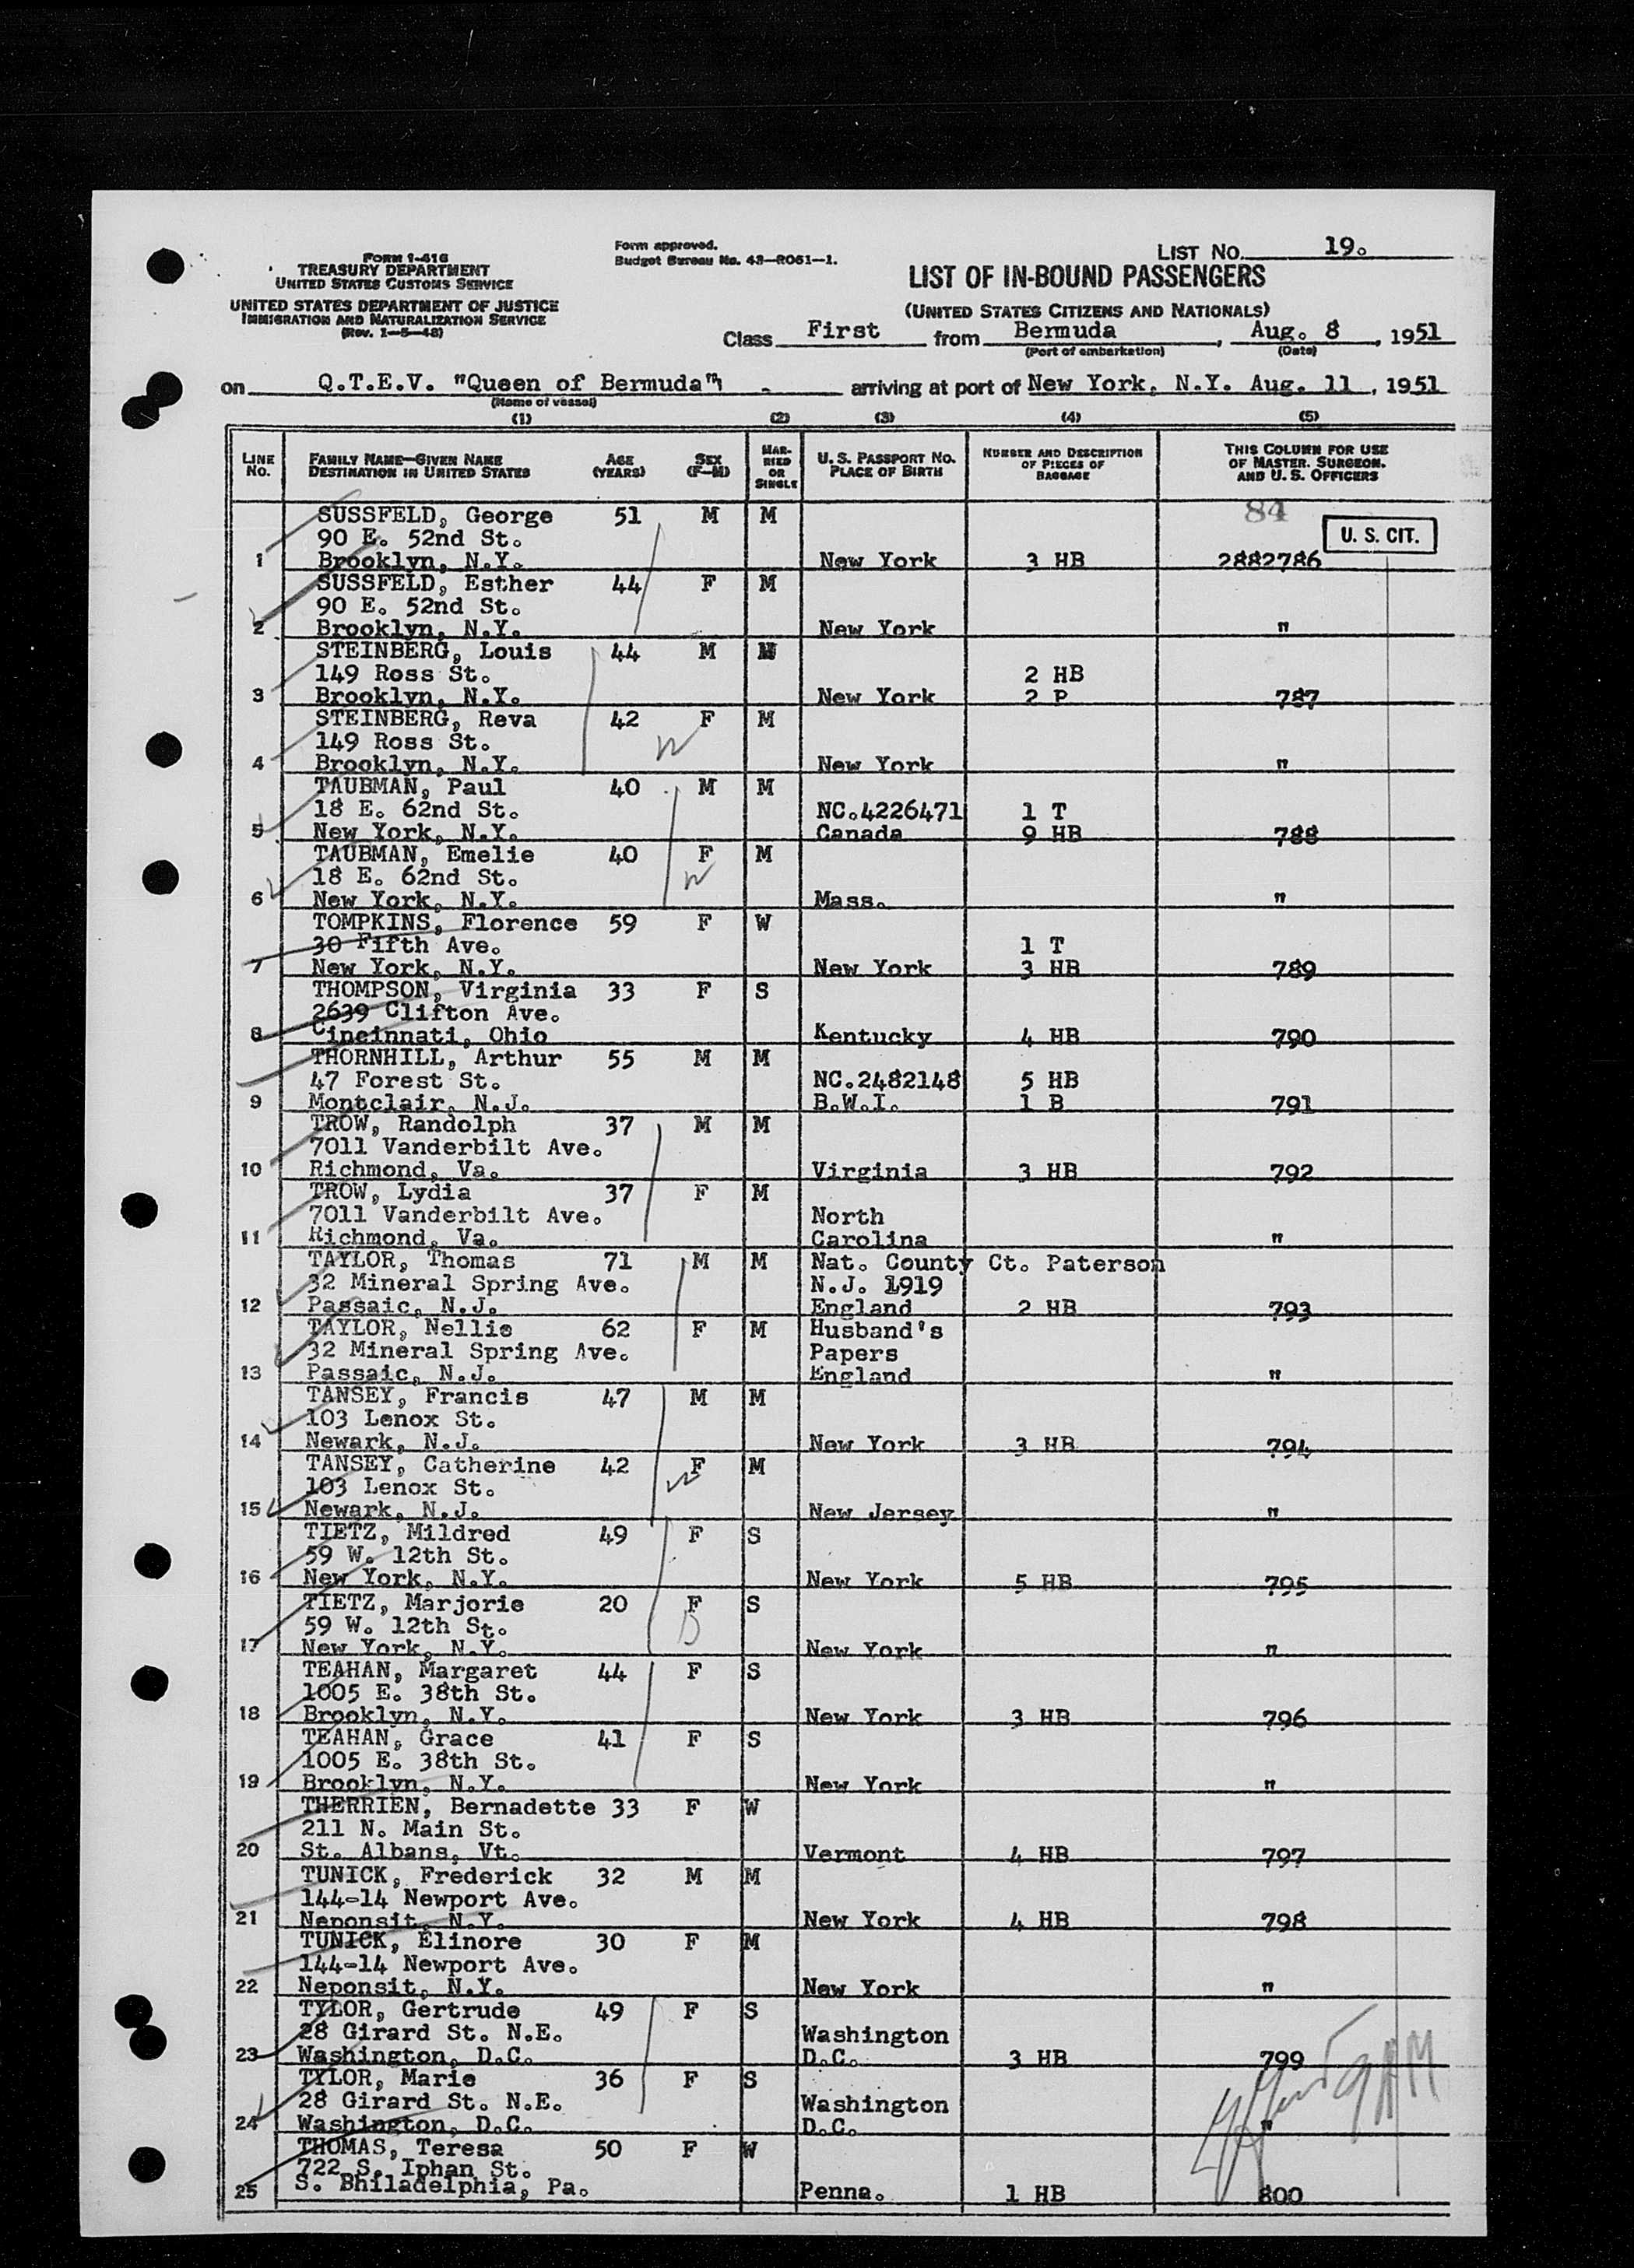 FORM I-416
TREASURY DEPARTMENT
UNITED STATES CUSTOMS SERVICE
UNITED STATES DEPARTMENT OF JUSTICE
IMMIGRATION AND NATURALIZATION SERVICE
(Rev. 1-5-48)
Form approved.
Budget Bureau No. 43-R061-1.
LIST NO. 19.
LIST OF IN-BOUND PASSENGERS
(UNITED STATES CITIZENS AND NATIONALS)
Class First from Bermuda, Aug. 8, 1951
(Port of embarkation) (Date)
on Q.T.E.V. "Queen of Bermuda" arriving at port of New York, N.Y. Aug. 11, 1951
(Name of vessel)
(1) (2) (3) (4) (5)
LINE NO. FAMILY NAME-GIVEN NAME DESTINATION IN UNITED STATES AGE (YEARS) SEX (F-M) MARRIED OR SINGLE U. S. PASSPORT NO. PLACE OF BIRTH NUMBER AND DESCRIPTION OF PIECES OF BAGGAGE THIS COLUMN FOR USE OF MASTER, SURGEON, AND U. S. OFFICERS
SUSSFELD, George 51 M M 84
90 E. 52nd St. U. S. CIT.
1 Brooklyn, N.Y. New York 3 HB 2882786
SUSSFELD, Esther 44 F M
90 E. 52nd St.
2 Brooklyn, N.Y. New York "
STEINBERG, Louis 44 M M
149 Ross St. 2 HB
3 Brooklyn, N.Y. New York 2 P 787
STEINBERG, Reva 42 F M
149 Ross St.
4 Brooklyn, N.Y. New York "
TAUBMAN, Paul 40 M M
18 E. 62nd St. NC.4226471 1 T
5 New York, N.Y. Canada 9 HB 788
TAUBMAN, Emelie 40 F M
18 E. 62nd St.
6 New York, N.Y. Mass. "
TOMPKINS, Florence 59 F W
30 Fifth Ave. 1 T
7 New York, N.Y. New York 3 HB 789
THOMPSON, Virginia 33 F S
2639 Clifton Ave.
8 Cincinnati, Ohio Kentucky 4 HB 790
THORNHILL, Arthur 55 M M
47 Forest St. NC.2482148 5 HB
9 Montclair, N.J. B.W.I. 1 B 791
TROW, Randolph 37 M M
7011 Vanderbilt Ave.
10 Richmond, Va. Virginia 3 HB 792
TROW, Lydia 37 F M
7011 Vanderbilt Ave. North
11 Richmond, Va. Carolina "
TAYLOR, Thomas 71 M M Nat. County Ct. Paterson
32 Mineral Spring Ave. N.J. 1919
12 Passaic, N.J. England 2 HB 793
TAYLOR, Nellie 62 F M Husband's
32 Mineral Spring Ave. Papers
13 Passaic, N.J. England "
TANSEY, Francis 47 M M
103 Lenox St.
14 Newark, N.J. New York 3 HB 794
TANSEY, Catherine 42 F M
103 Lenox St.
15 Newark, N.J. New Jersey "
TIETZ, Mildred 49 F S
59 W. 12th St.
16 New York, N.Y. New York 5 HB 795
TIETZ, Marjorie 20 F S
59 W. 12th St.
17 New York, N.Y. New York "
TEAHAN, Margaret 44 F S
1005 E. 38th St.
18 Brooklyn, N.Y. New York 3 HB 796
TEAHAN, Grace 41 F S
1005 E. 38th St.
19 Brooklyn, N.Y. New York "
THERRIEN, Bernadette 33 F W
211 N. Main St.
20 St. Albans, Vt. Vermont 4 HB 797
TUNICK, Frederick 32 M M
144-14 Newport Ave.
21 Neponsit, N.Y. New York 4 HB 798
TUNICK, Elinore 30 F M
144-14 Newport Ave.
22 Neponsit, N.Y. New York "
TYLOR, Gertrude 49 F S
28 Girard St. N.E. Washington
23 Washington, D.C. D.C. 3 HB 799
TYLOR, Marie 36 F S
28 Girard St. N.E. Washington
24 Washington, D.C. D.C. "
THOMAS, Teresa 50 F W
722 S. Iphan St.
25 S. Philadelphia, Pa. Penna. 1 HB 800